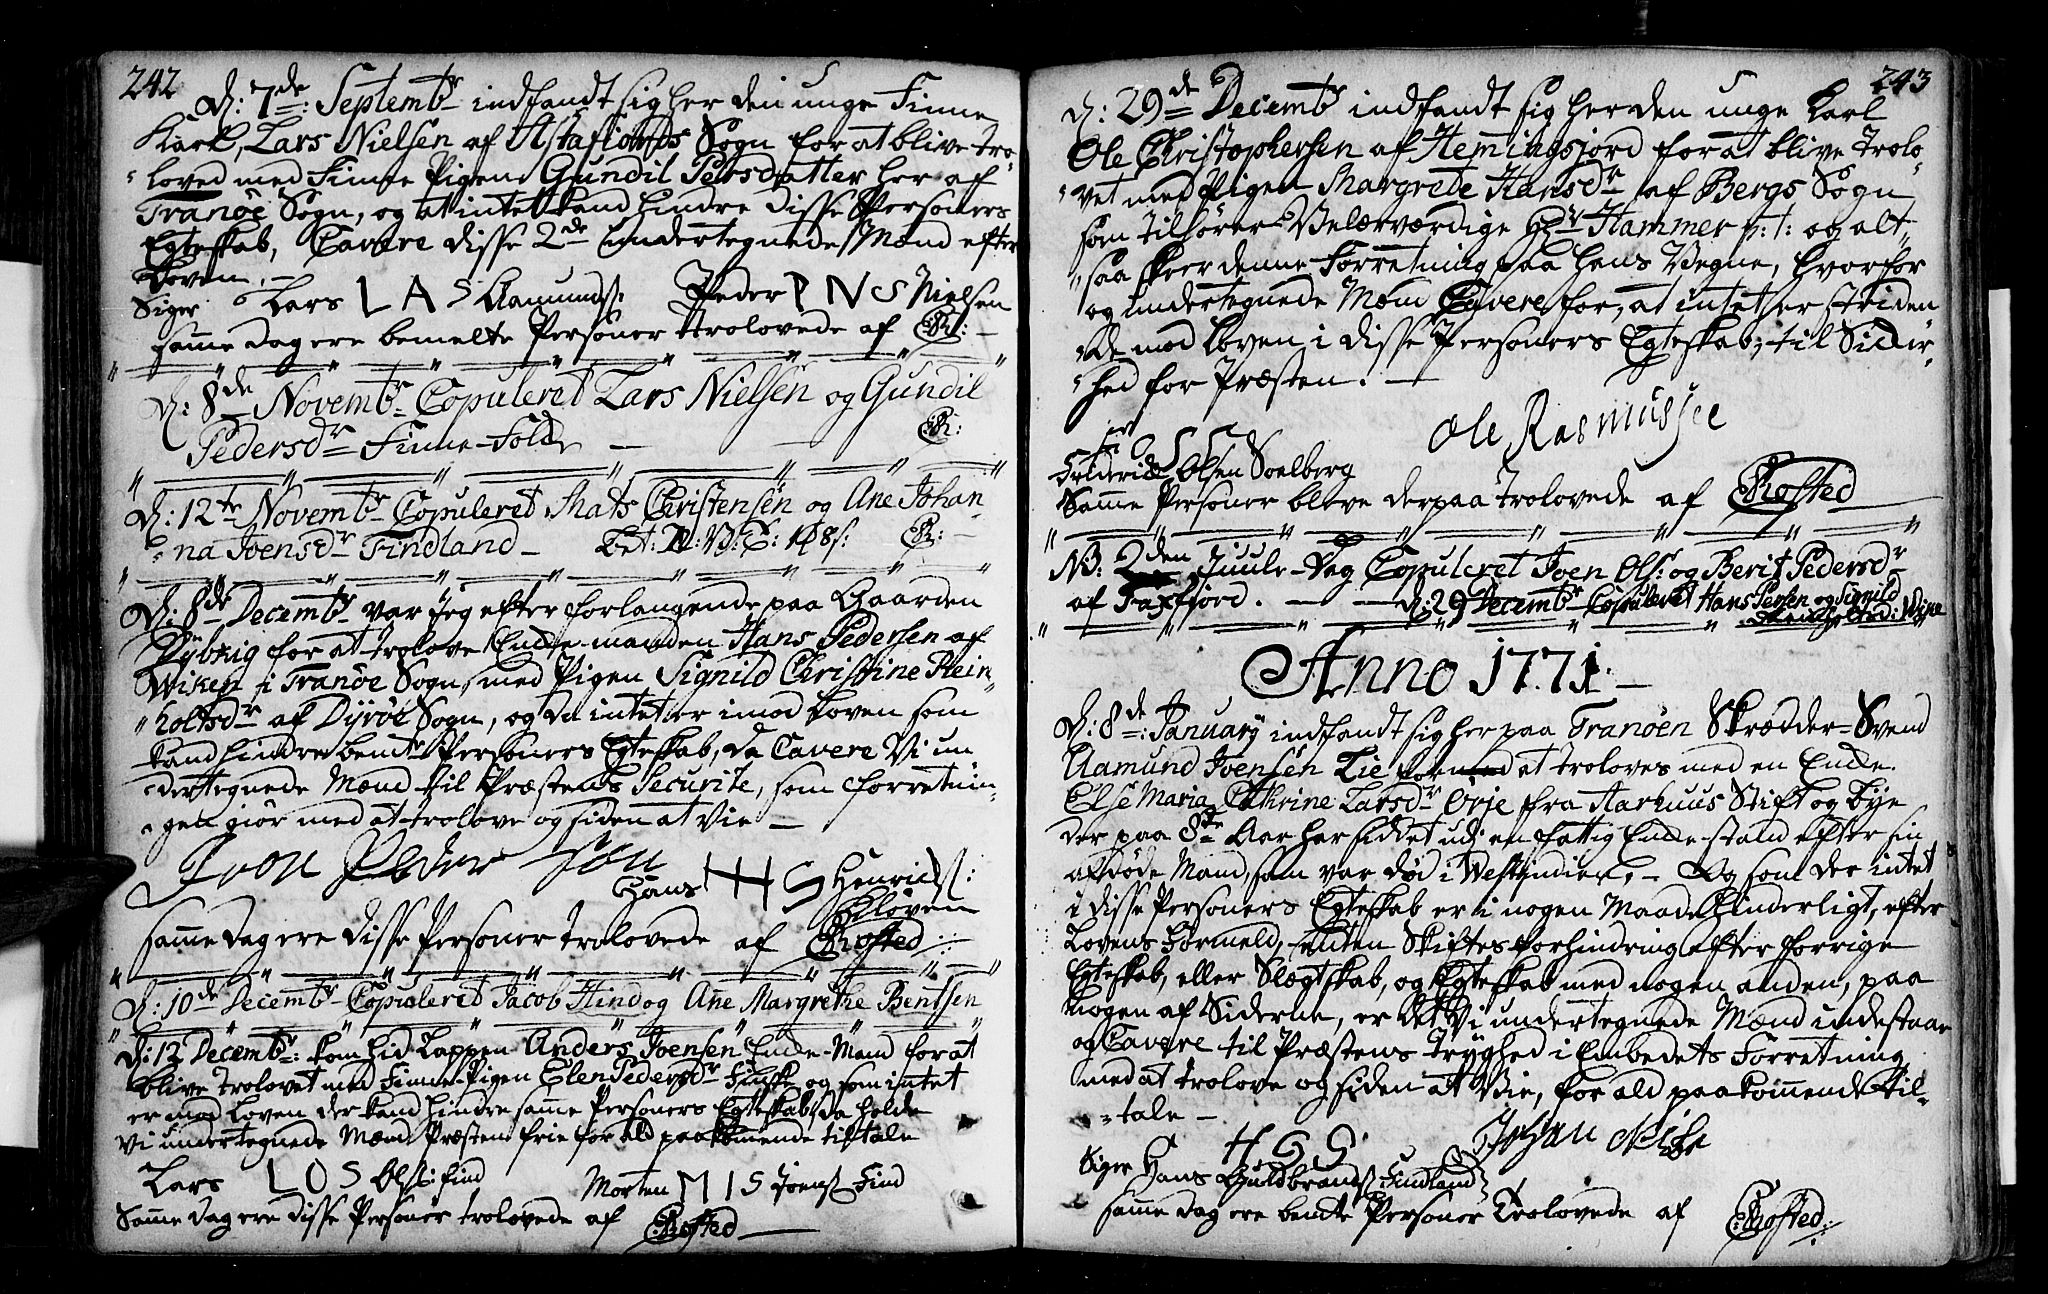 242
D: 7de: Septembr indfandt sig her den unge Finne
Karl, Lars Nielsen af Astaflords Sogn for at blive tro-
loved med Finne Pigen Gundil Persdatter her af
Tranöe Sogn, og at intet kand hindre disse Personers
Egteskab, Cavere disse 2de Undertegnede Mænd efter
Loven. —
Siger Lars LAS Aamunds: Peder PNS Nielsen
samme dag ere bemelte Personer trolovede af ER: —
D: 8de Novembr Copuleret Lars Nielsen og Gundil
Pedersdr Finne-Folk — ER:
D: 12te Novembr Copuleret Mats Christensen og Ane Johan-
na Joensdr Findland — ER: —
D: 8de Decembr var Jeg efter forlangende paa Gaarden
Dybvig for at trolove Enke-manden Hans Pedersen af
Wiken i Tranöe Sogn, med Pigen Signild Christine Rein-
holtsdr af Dyröe Sogn, og da intet er imod Loven som
kand hindre bemte Personers Egteskab, da Cavere Vi un
dertegnede Mænd til Præstens Securite, som forretnin-
gen giör med at trolove og siden at vie —
Iver Peder son
Hans HHS Henrichs:
Kilöven
samme dag ere disse Personer trolovede af ERofted
D: 10de Decembr Copuleret Jacob Hind og Ane Margrethe Bentsen
D: 12 Decembr: kom hid Lappen Anders Joensen Enke-Mand for at
blive trolovet med Finne-Pigen Elen Pedersdr Finske og som intet
er mod Loven der kand hindre samme Personers Egteskab, da holde
Vi undertegnede Mænd Præsten frie for ald paakommende tiltale
Lars LOS Ols: find Morten MIS Joens: Find
Samme dag ere disse Personer trolovede af ERofted —
243
D: 29de Decembr indfandt sig her den unge Karl
Ole Christophersen af Hemingsjord for at blive trolo-
vet med Pigen Margrete Hansdr af Bergs Sogn
som tilhörer Velærværdige Hr Hammer p: t: og alt-
saa skeer denne Forretning paa hans Vegne, hvorfor
og undertegnede Mænd Cavere for, at intet er striden
de mod Loven i disse Personers Egteskab, til Sicker-
hed for Præsten. —
Ole Rasmussee
Friderich Olsen Soelberg
Samme Personer bleve derpaa trolovede af ERofted
NB: 2den Juule-Dag Copuleret Joen Ols: og Berit Pedersdr
af Faxfjord. — D: 29 Decembr Copuleret Hans Persen og Signild
Anno 1771: —
D: 8de: January indfandt sig her paa Tranöen Skrædder-Svend
Aamund Joensen Lie for at troloves med en Enke
Else Maria Cathrine Larsdr Örje fra Aarhuus Stift og Bye
der paa 8te Aar har siddet udi en fattig Enke-stand efter sin
afdöde Mand, som var död i Westindien, — Og som der intet
i disse Personers Egteskab er i nogen Maade hinderligt, efter
Lovens Formeld, enten Skiftes forhindring efter forrige
Egteskab, eller Slegtskab, og Egteskab med nogen anden, paa
nogen af Siderne, er det Vi undertegnede Mænd indestaar
og Cavere til Præstens Tryghed i Embedets Forretning
med at trolove og siden at Vie, for ald paakommende til-
tale —
Siger Hans HGS Guldbrands: Findland
samme dag ere bemte Personer Trolovede af ERofted: